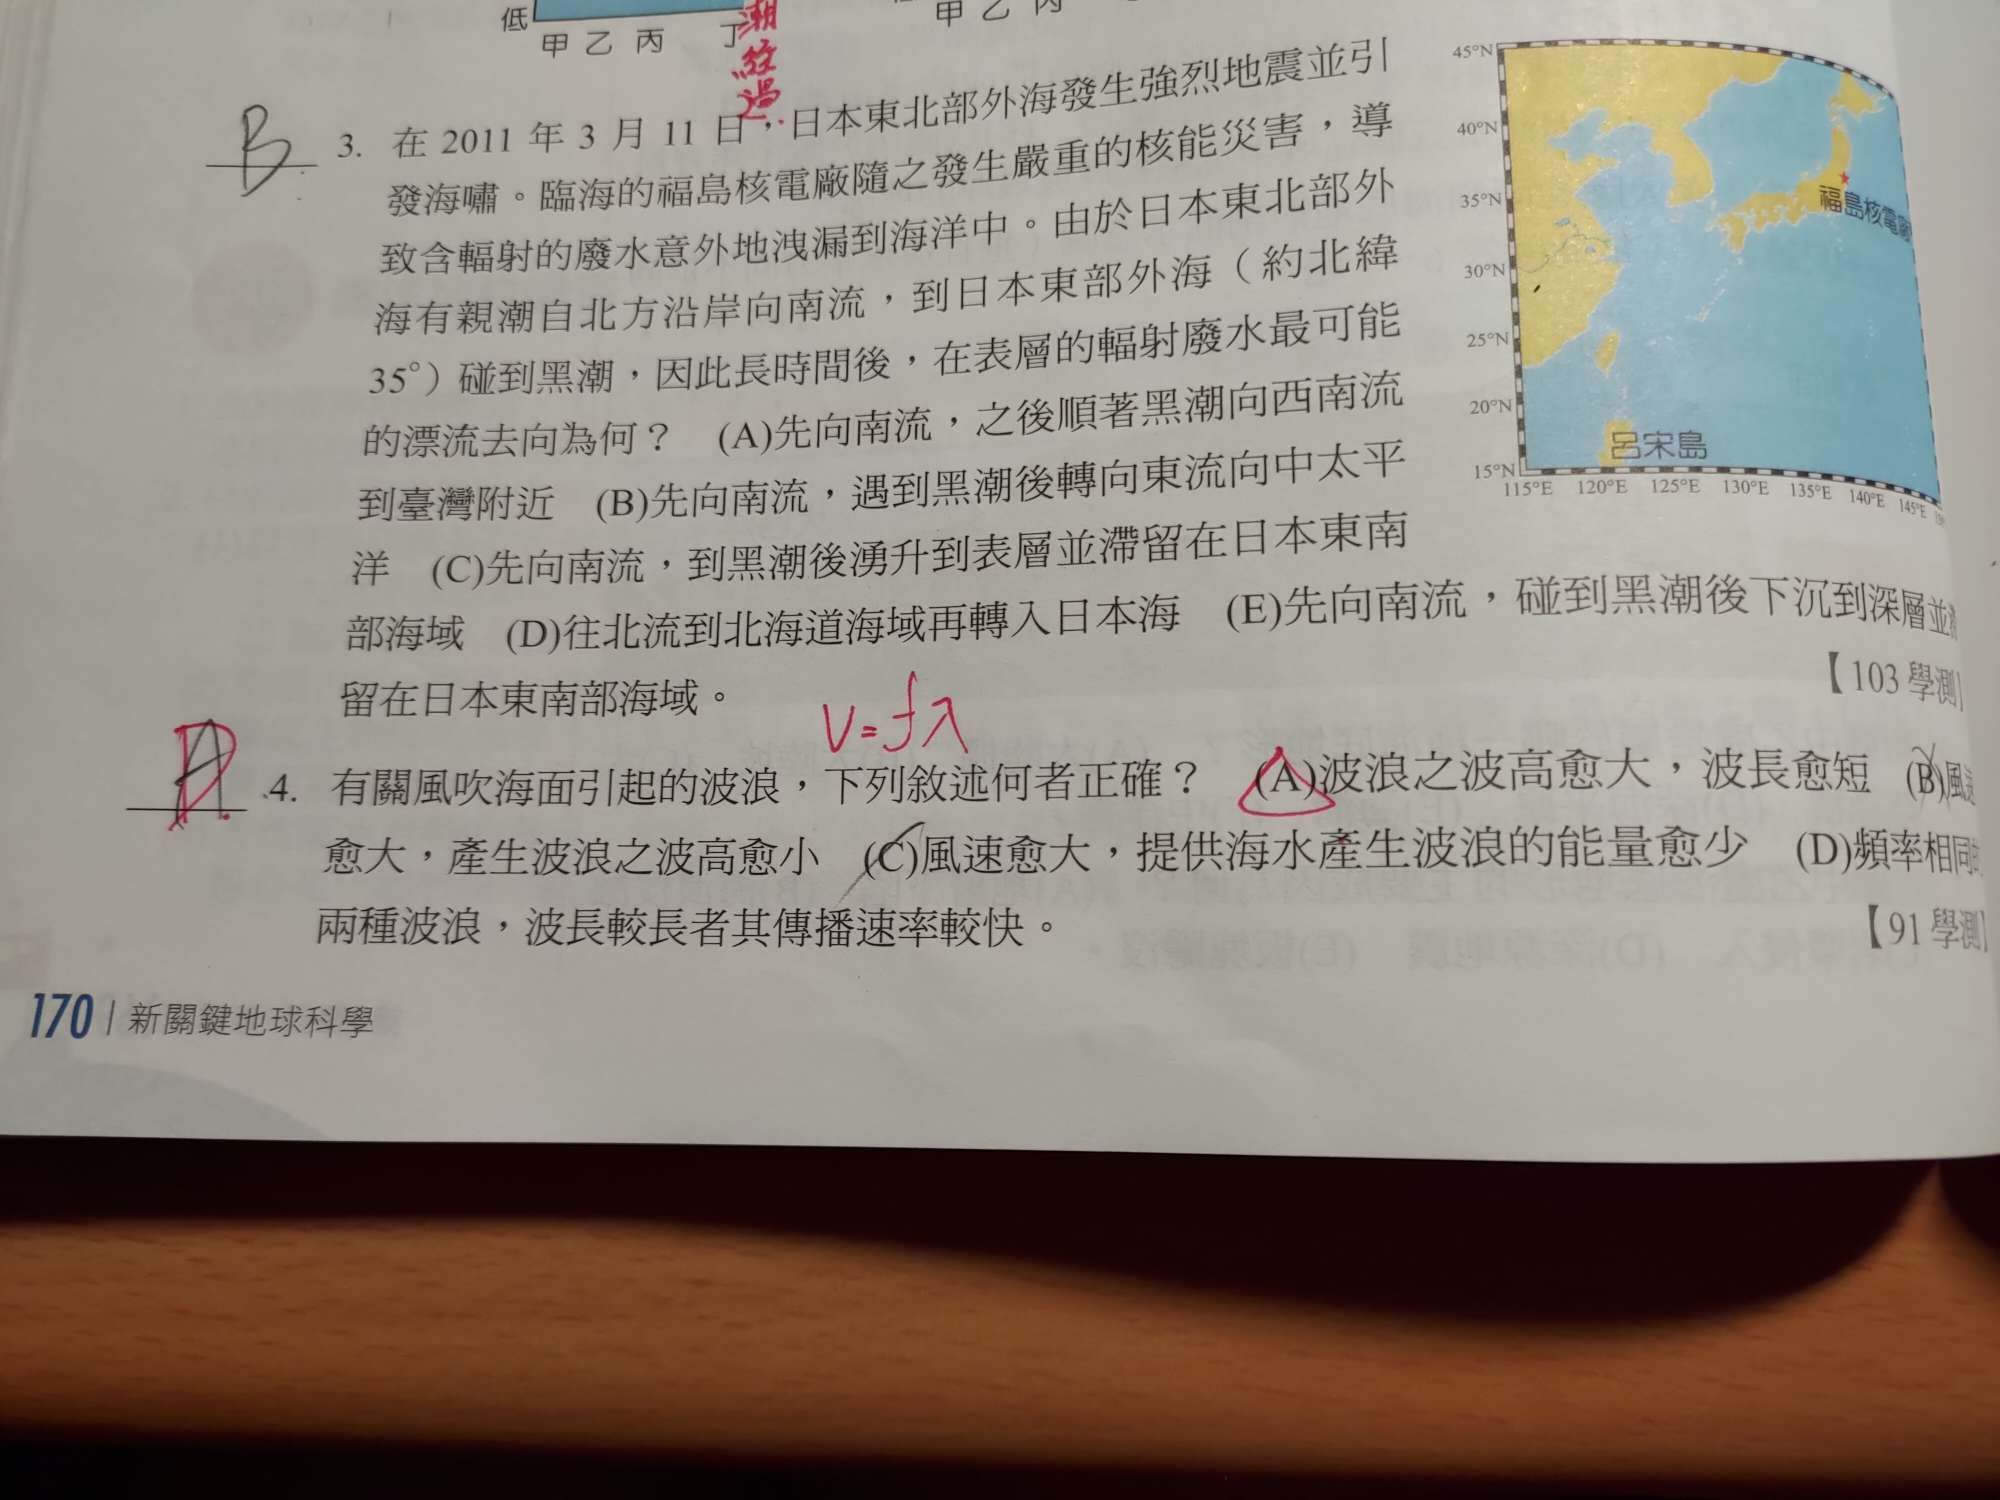 低
甲 乙 丙 丁
甲 乙 丙
潮
皎
過.
B
3. 在 2011 年 3 月 11 日，日本東北部外海發生強烈地震並引
發海嘯。臨海的福島核電廠隨之發生嚴重的核能災害，導
致含輻射的廢水意外地洩漏到海洋中。由於日本東北部外
海有親潮自北方沿岸向南流，到日本東部外海（約北緯
35°）碰到黑潮，因此長時間後，在表層的輻射廢水最可能
的漂流去向為何？ (A)先向南流，之後順著黑潮向西南流
到臺灣附近 (B)先向南流，遇到黑潮後轉向東流向中太平
洋 (C)先向南流，到黑潮後湧升到表層並滯留在日本東南
部海域 (D)往北流到北海道海域再轉入日本海 (E)先向南流，碰到黑潮後下沉到深層並
留在日本東南部海域。
【103 學測】
45°N
40°N
35°N
30°N
25°N
20°N
15°N
福島核電廠
呂宋島
115°E 120°E 125°E 130°E 135°E 140°E 145°E
V=fλ
D
4. 有關風吹海面引起的波浪，下列敘述何者正確？ (A)波浪之波高愈大，波長愈短 (B)風速
愈大，產生波浪之波高愈小 (C)風速愈大，提供海水產生波浪的能量愈少 (D)頻率相同的
兩種波浪，波長較長者其傳播速率較快。
【91 學測】
170 | 新關鍵地球科學